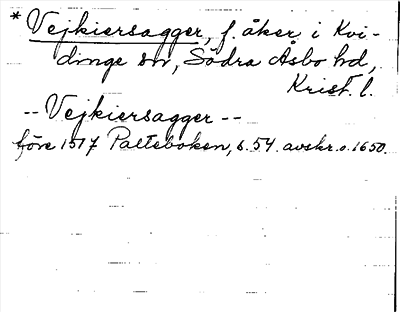 * Vejkiersagger, f. åker i Kvi-
dinge sn, Södra Åsbo hd,
Krist. l.
-- Vejkiersagger --
före 1517 Palteboken, s. 54. avskr. o. 1650.